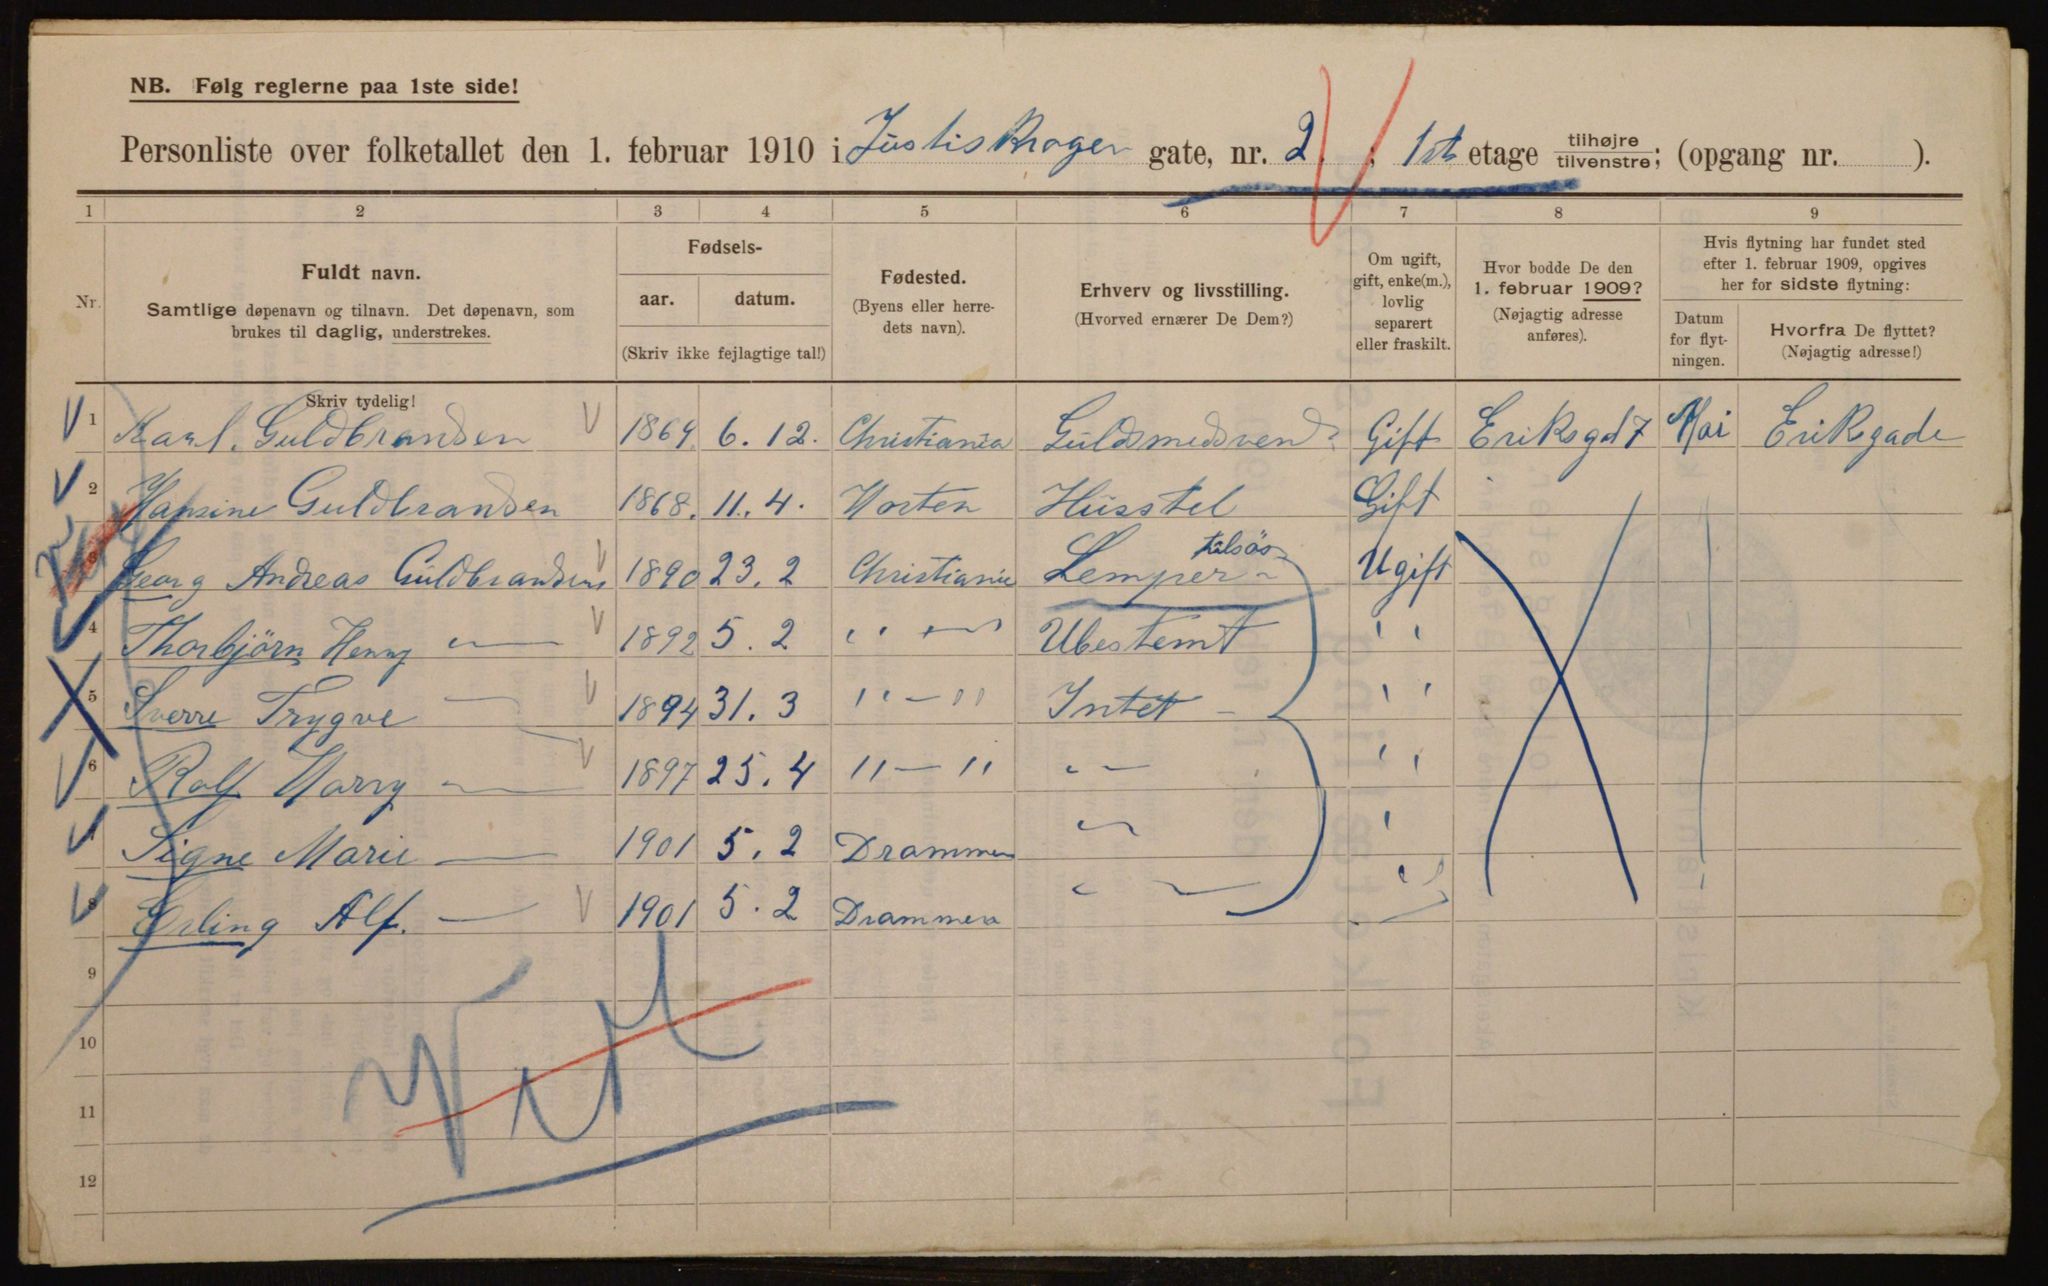 NB. Følg reglerne paa 1ste side!
Personliste over folketallet den 1. februar 1910 i Justiskroger gate, nr. 2. ; 1ste etage tilhøjre tilvenstre; (opgang nr. ).
1 2 3 4 5 6 7 8 9
Nr.
Fuldt navn.
Samtlige døpenavn og tilnavn. Det døpenavn, som
brukes til daglig, understrekes.
Fødsels-
aar. datum.
(Skriv ikke fejlagtige tal!)
Fødested.
(Byens eller herre-
dets navn).
Erhverv og livsstilling.
(Hvorved ernærer De Dem?)
Om ugift,
gift, enke(m.),
lovlig
separert
eller fraskilt.
Hvor bodde De den
1. februar 1909?
(Nøjagtig adresse
anføres).
Hvis flytning har fundet sted
efter 1. februar 1909, opgives
her for sidste flytning:
Datum
for flyt-
ningen.
Hvorfra De flyttet?
(Nøjagtig adresse!)
Skriv tydelig!
1 Karl. Guldbrandsen 1869 6. 12. Christiania Guldsmedsvend Gift Eriksgd 7 Mai Eriksgade
2 Hansine Guldbrandsen 1868. 11. 4. Horten Husstel Gift
3 Georg Andreas Guldbrandsen 1890 23. 2 Christiania Lemper Ugift
4 Thorbjörn Henry — 1892 5. 2 " — " Ubestemt " "
5 Sverre Trygve — 1894 31. 3 " — " Intet — " "
6 Rolf Harry — 1897 25. 4 " — " " — " "
7 Signe Marie — 1901 5. 2 Drammen " "
8 Erling Alf. — 1901 5. 2 Drammen " — "
9
10
11
12